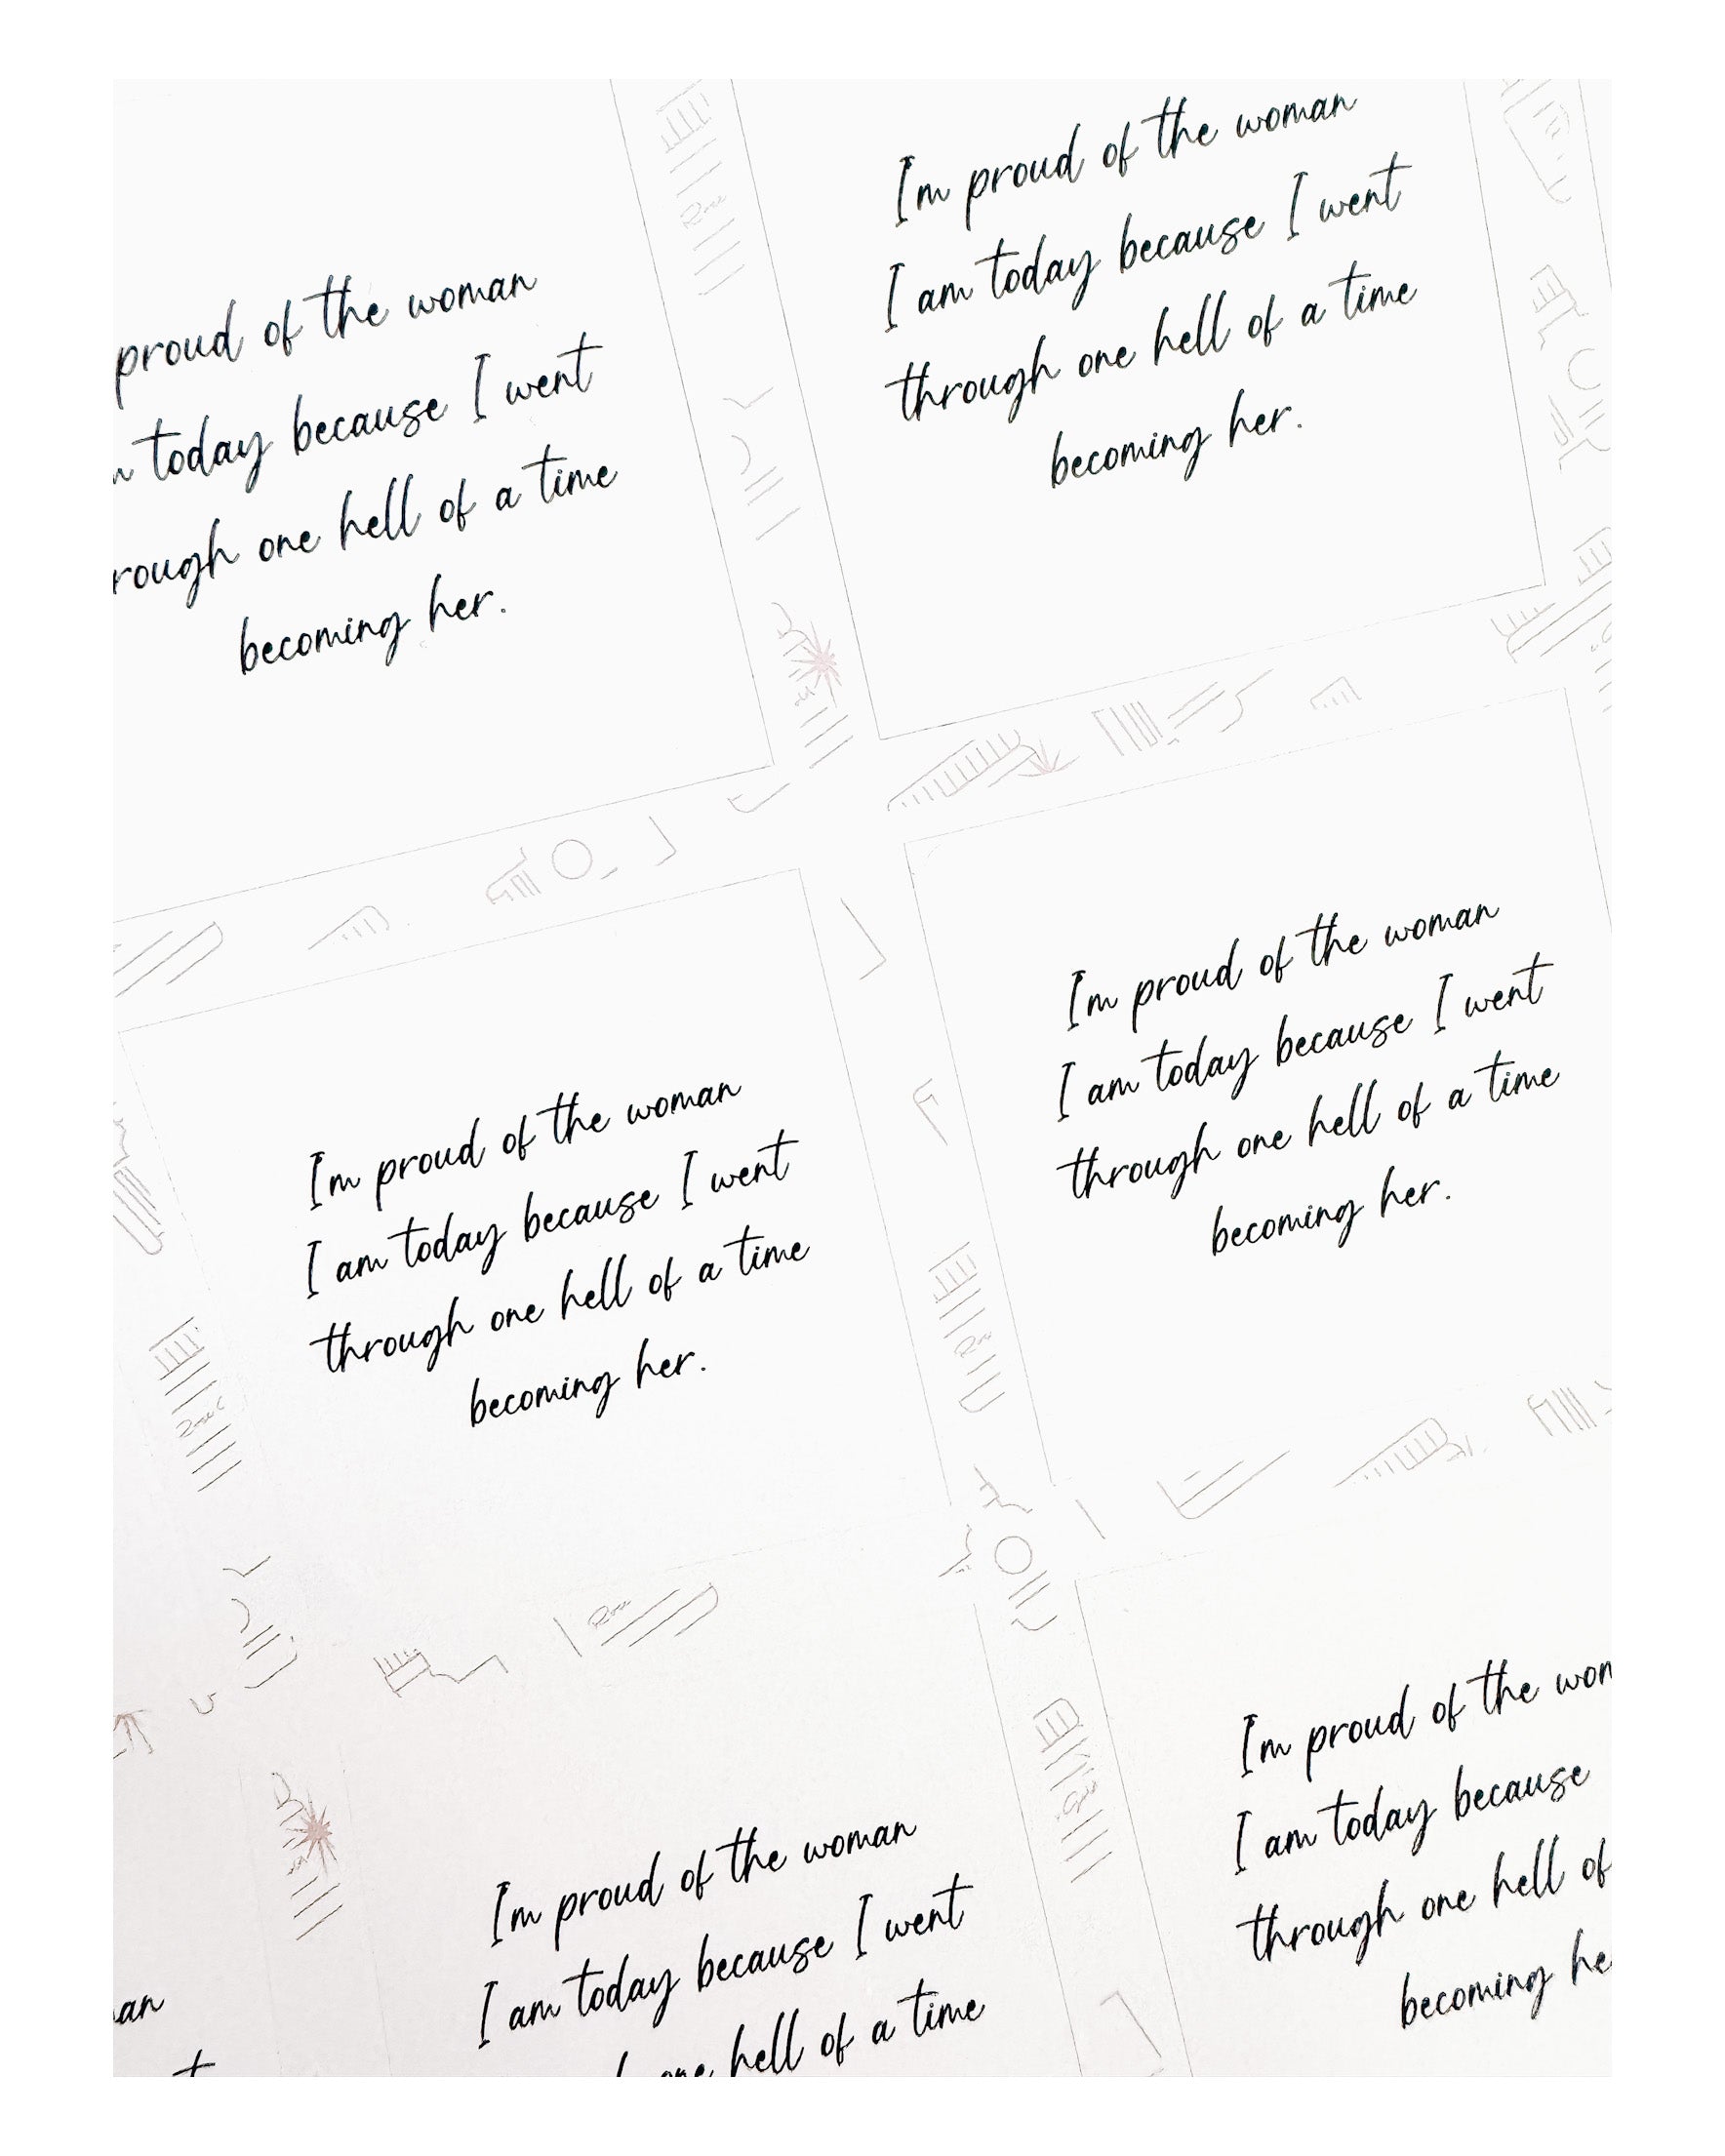 proud of the woman
today because I went
rough one hell of a time
becoming her.
Im proud of the woman
I am today because I went
through one hell of a time
becoming her.
Im proud of the woman
I am today because I went
through one hell of a time
becoming her.
Im proud of the woman
I am today because I went
through one hell of a time
becoming her.
an
t
Im proud of the woman
I am today because I went
one hell of a time
Im proud of the wom
I am today because
through one hell of
becoming he